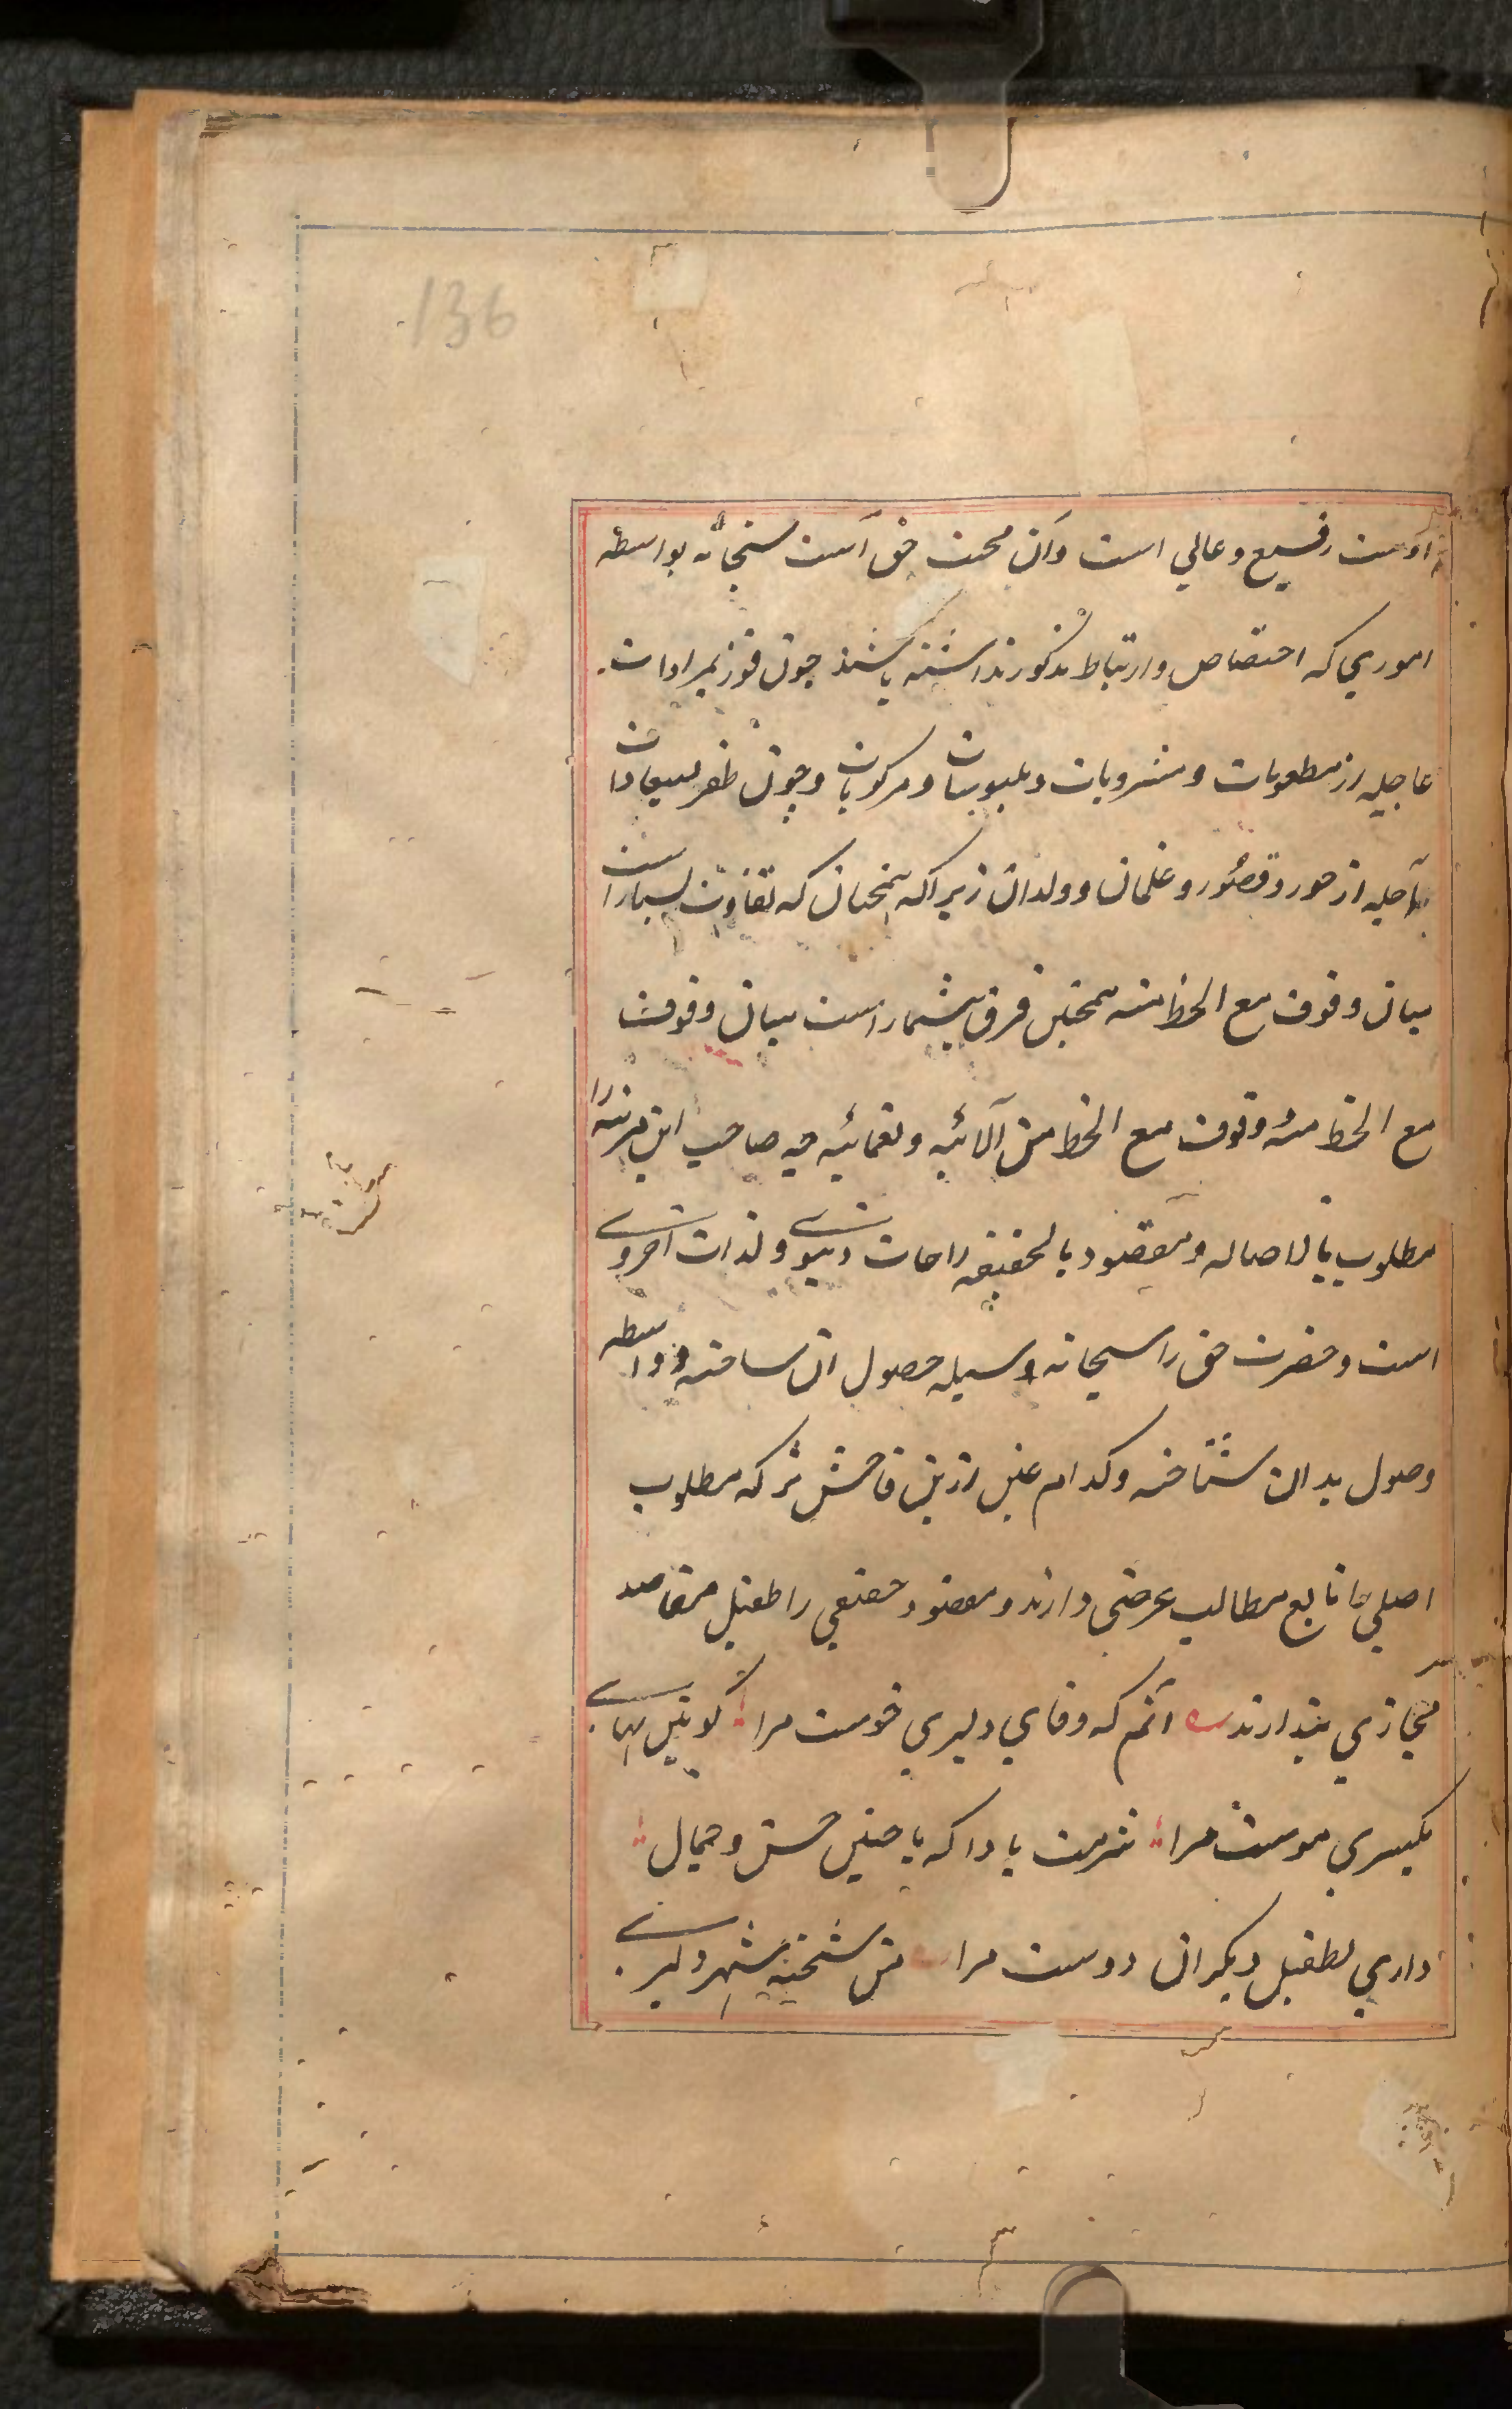 136
اوست رفیع و عالی است و آن محبت حق است سبحانه بواسطه
اموری که اختصاص و ارتباط مذکور نداشته باشند چون فوز بمرادات
عاجله از مطعومات و مشروبات و ملبوسات و مرکوبات و چون ظفر بمیعادات
آجله از حور و قصور و غلمان و ولدان زیرا که همچنان که تفاوت بسیار است
میان وقوف مع الحظ منه همچنین فرق بیشمار است میان وقوف
مع الحظ منه وقوف مع الحظ من آلائیه و نعمائیه چه صاحب این مرتبه را
مطلوب بالاصاله و مقصود بالحقیقه راحات دنیوی و لذات اخروی
است و حضرت حق را سبحانه وسیله حصول آن ساخته و واسطه
وصول بدان شناخته و کدام غبن ازین فاحش تر که مطلوب
اصلی را تابع مطالب عرضی دارند و مقصود حقیقی را طفیل مقاصد
مجازی پندارند آنم که وفای دلبری خوست مرا کونین بهای
یکسری موست مرا شرمت بادا که با چنین حسن و جمال
داری بطفیل دیگران دوست مرا من شحنه شهر دلبری